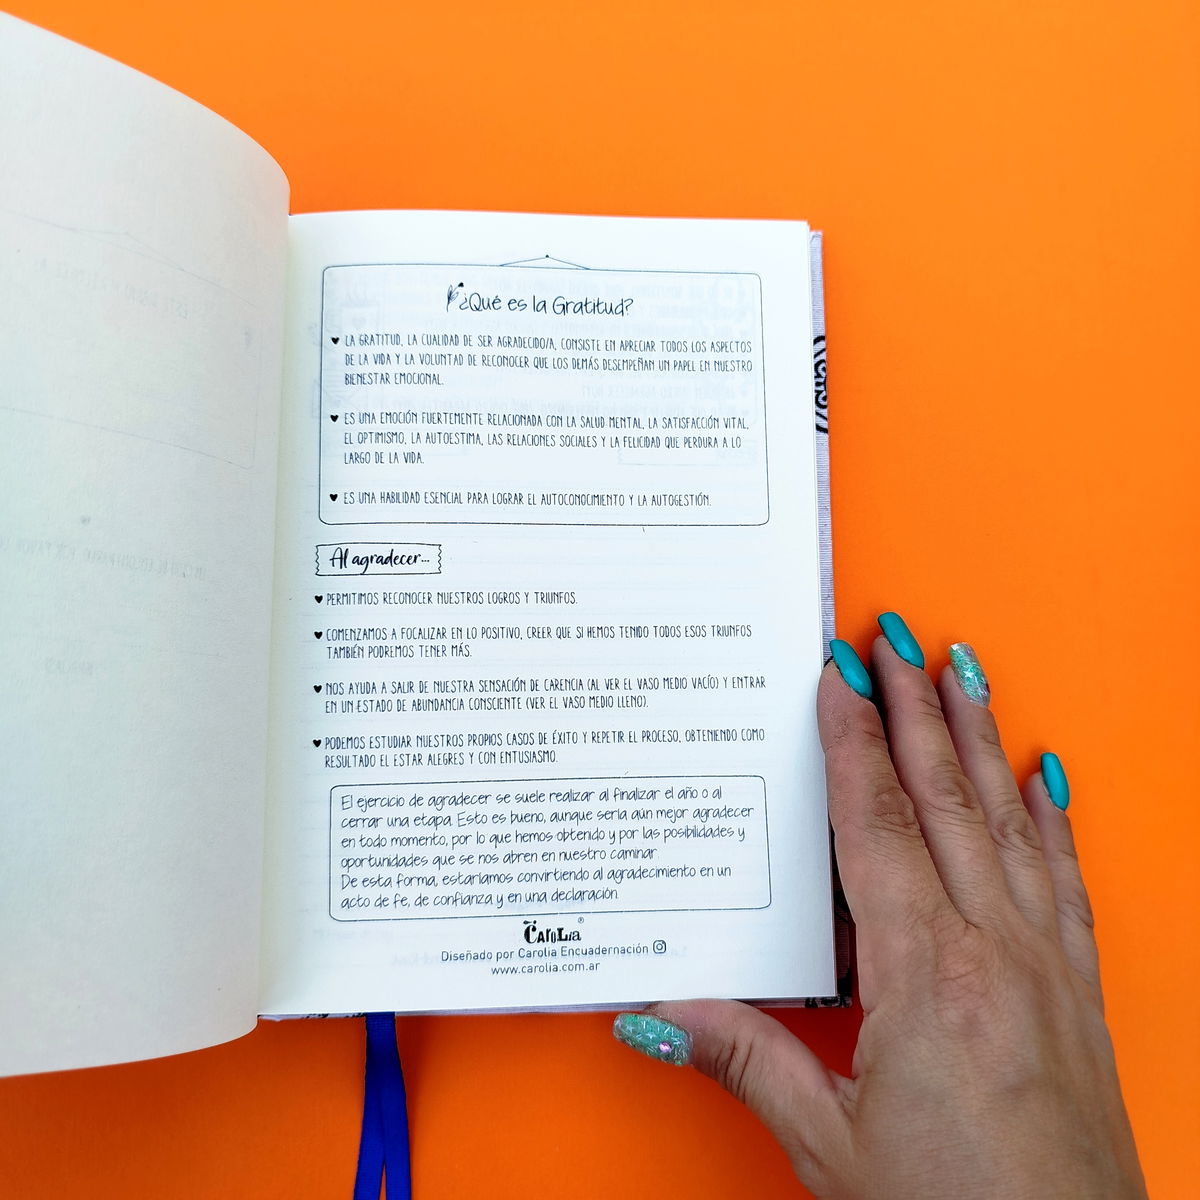 ¿Qué es la Gratitud?
LA GRATITUD, LA CUALIDAD DE SER AGRADECIDO/A, CONSISTE EN APRECIAR TODOS LOS ASPECTOS
DE LA VIDA Y LA VOLUNTAD DE RECONOCER QUE LOS DEMÁS DESEMPEÑAN UN PAPEL EN NUESTRO
BIENESTAR EMOCIONAL.
ES UNA EMOCIÓN FUERTEMENTE RELACIONADA CON LA SALUD MENTAL, LA SATISFACCIÓN VITAL,
EL OPTIMISMO, LA AUTOESTIMA, LAS RELACIONES SOCIALES Y LA FELICIDAD QUE PERDURA A LO
LARGO DE LA VIDA.
ES UNA HABILIDAD ESENCIAL PARA LOGRAR EL AUTOCONOCIMIENTO Y LA AUTOGESTIÓN.
Al agradecer...
PERMITIMOS RECONOCER NUESTROS LOGROS Y TRIUNFOS.
COMENZAMOS A FOCALIZAR EN LO POSITIVO, CREER QUE SI HEMOS TENIDO TODOS ESOS TRIUNFOS
TAMBIÉN PODREMOS TENER MÁS.
NOS AYUDA A SALIR DE NUESTRA SENSACIÓN DE CARENCIA (AL VER EL VASO MEDIO VACÍO) Y ENTRAR
EN UN ESTADO DE ABUNDANCIA CONSCIENTE (VER EL VASO MEDIO LLENO).
PODEMOS ESTUDIAR NUESTROS PROPIOS CASOS DE ÉXITO Y REPETIR EL PROCESO, OBTENIENDO COMO
RESULTADO EL ESTAR ALEGRES Y CON ENTUSIASMO.
El ejercicio de agradecer se suele realizar al finalizar el año o al
cerrar una etapa. Esto es bueno, aunque sería aún mejor agradecer
en todo momento, por lo que hemos obtenido y por las posibilidades y
oportunidades que se nos abren en nuestro caminar.
De esta forma, estaríamos convirtiendo al agradecimiento en un
acto de fe, de confianza y en una declaración.
CAROLIA®
Diseñado por Carolia Encuadernación
www.carolia.com.ar